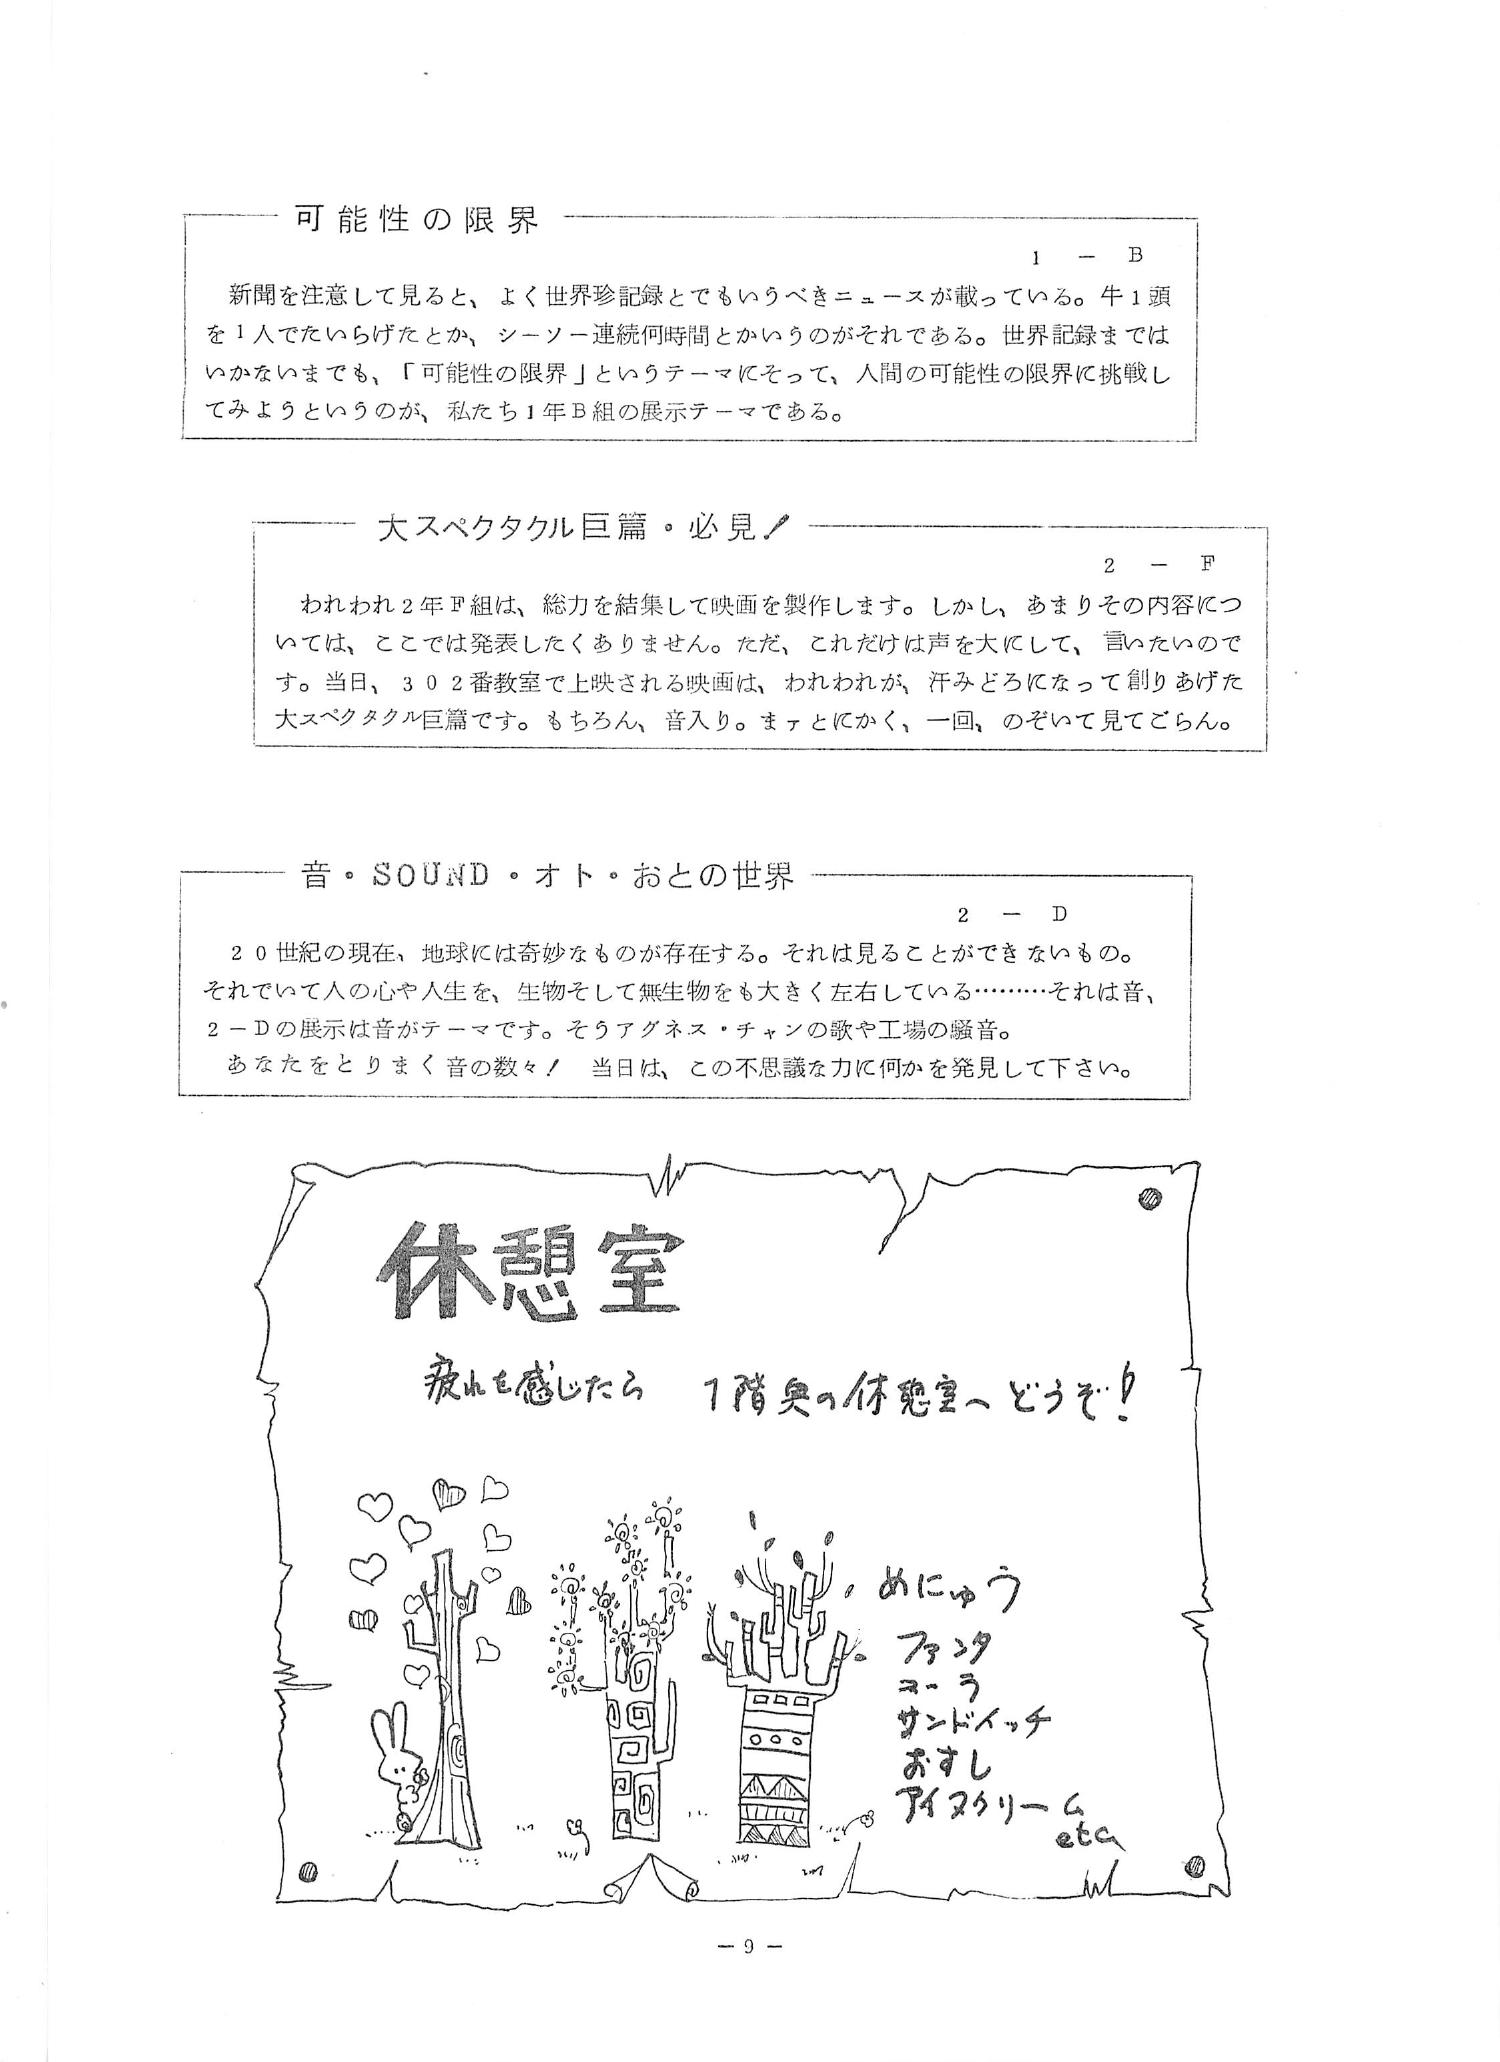 可能性の限界
1 － B
新聞を注意して見ると、よく世界珍記録とでもいうべきニュースが載っている。牛1頭
を1人でたいらげたとか、シーソー連続何時間とかいうのがそれである。世界記録までは
いかないまでも、「可能性の限界」というテーマにそって、人間の可能性の限界に挑戦し
てみようというのが、私たち1年B組の展示テーマである。
大スペクタクル巨篇・必見！
2 － F
われわれ2年F組は、総力を結集して映画を製作します。しかし、あまりその内容につ
いては、ここでは発表したくありません。ただ、これだけは声を大にして、言いたいので
す。当日、302番教室で上映される映画は、われわれが、汗みどろになって創りあげた
大スペクタクル巨篇です。もちろん、音入り。まァとにかく、一回、のぞいて見てごらん。
音・SOUND・オト・おとの世界
2 － D
20世紀の現在、地球には奇妙なものが存在する。それは見ることができないもの。
それでいて人の心や人生を、生物そして無生物をも大きく左右している………それは音、
2－Dの展示は音がテーマです。そうアグネス・チャンの歌や工場の騒音。
あなたをとりまく音の数々！　当日は、この不思議な力に何かを発見して下さい。
休憩室
疲れを感じたら　1階奥の休憩室へどうぞ！
めにゅう
ファンタ
コーラ
サンドイッチ
おすし
アイスクリーム
etc
－ 9 －